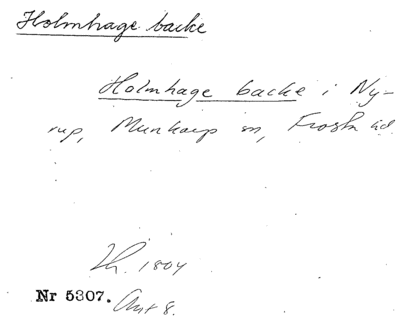 Holmhage backe
Holmhage backe i Ny-
rup, Munkarp sn, Frosta hd
Th. 1804
Nr 5307. Ant 8.